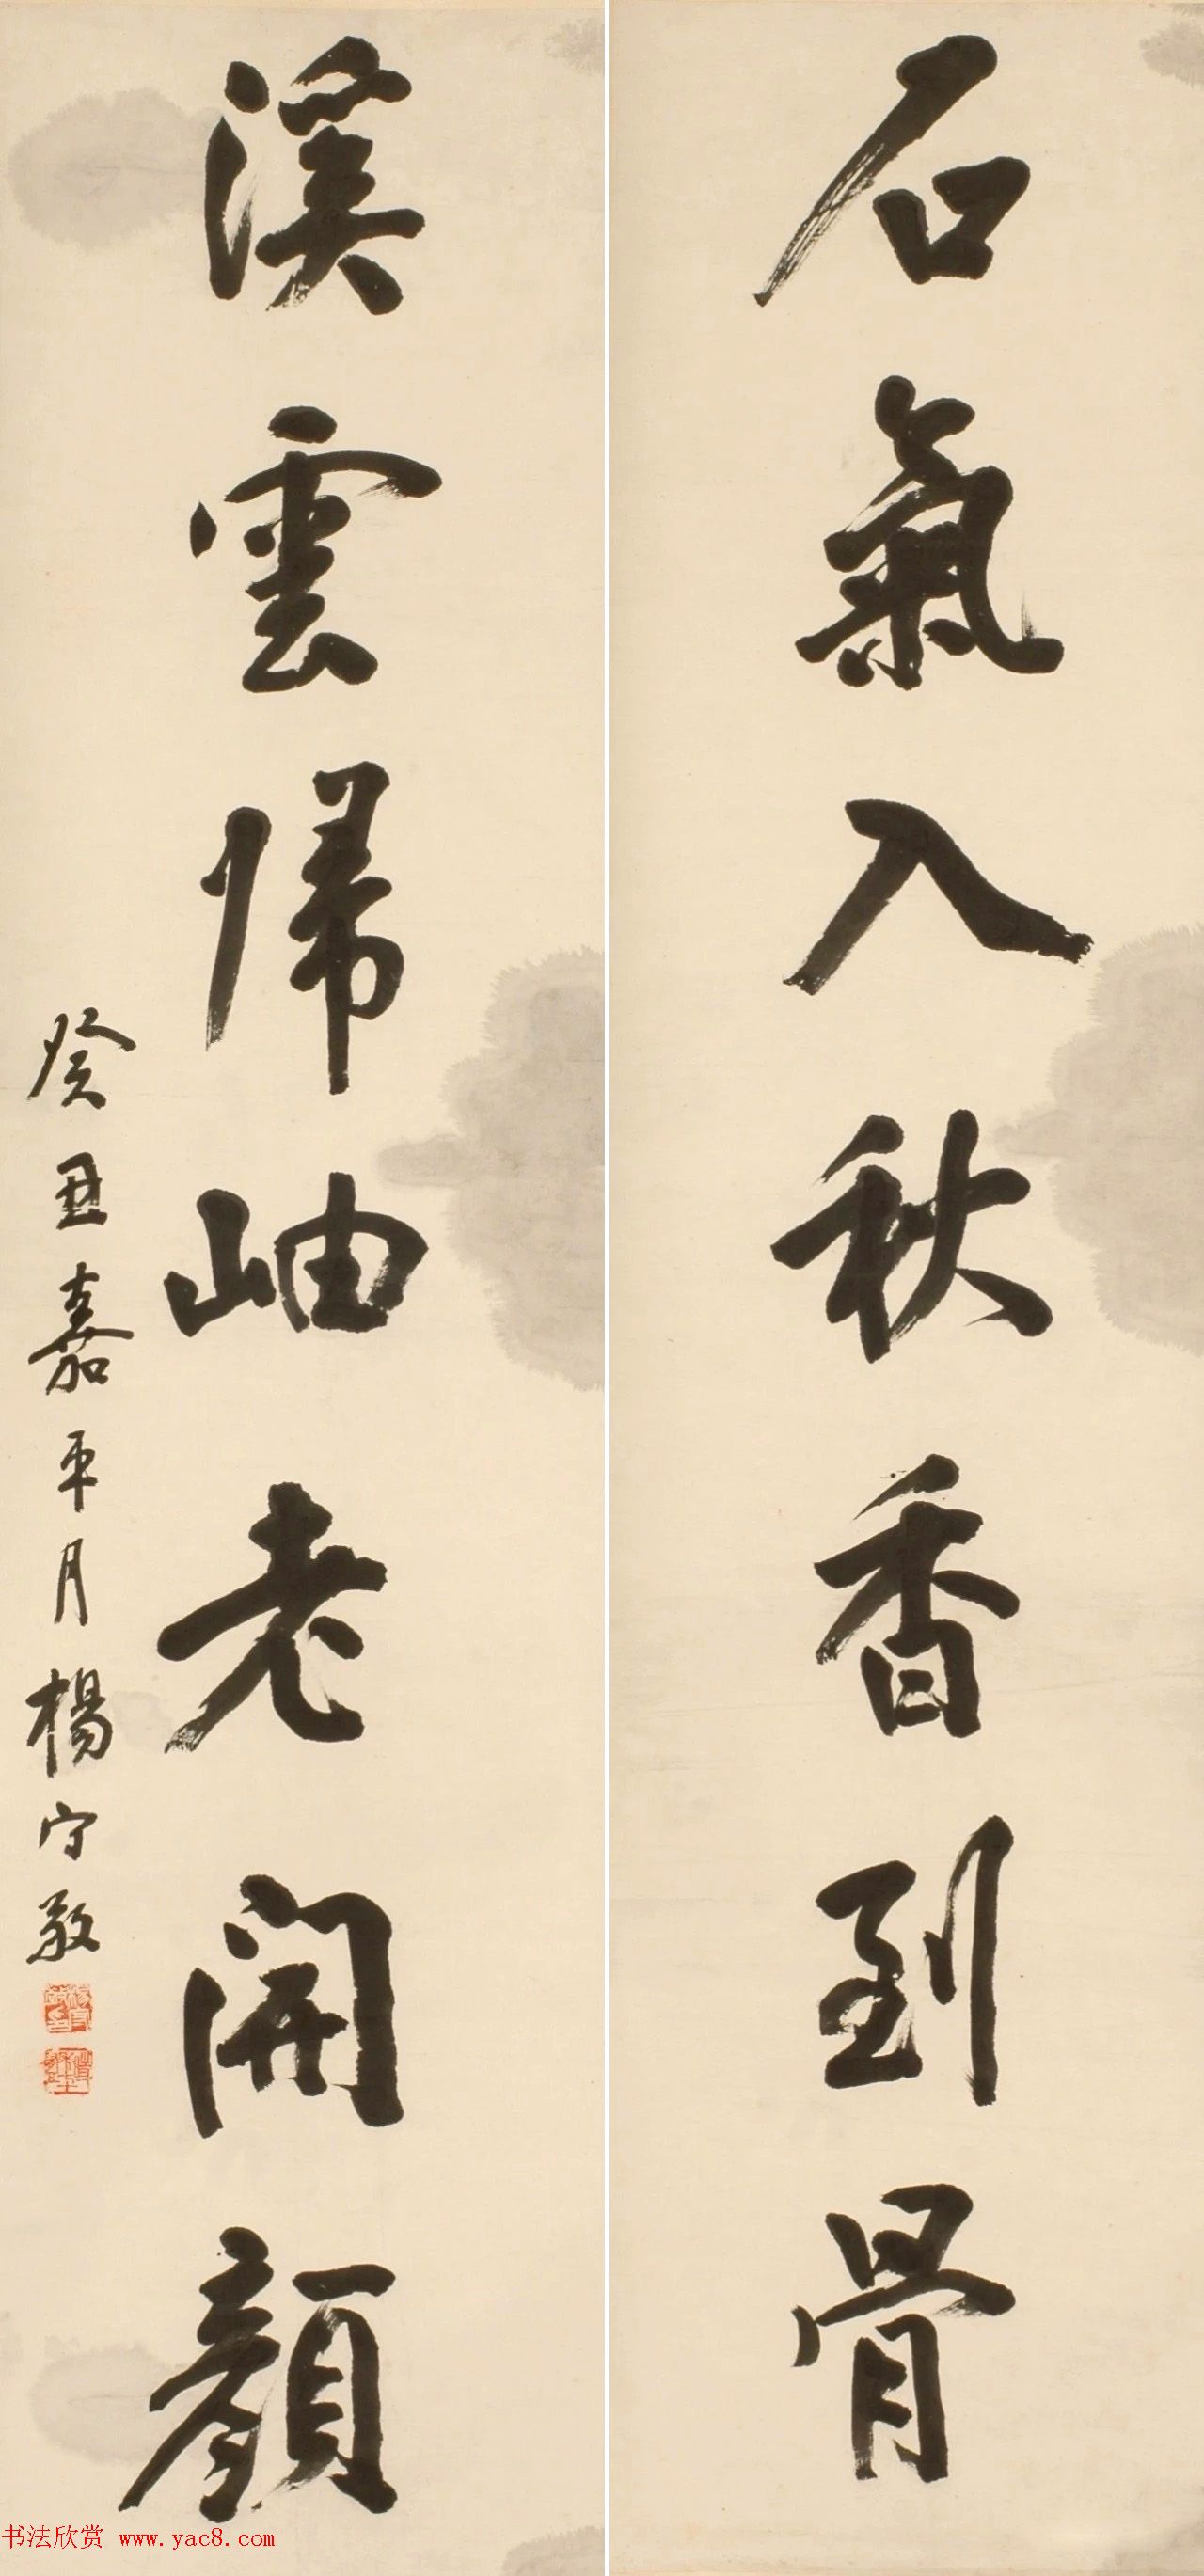 石氣入秋香到骨
溪雲歸岫老開顏
癸丑嘉平月楊守敬
书法欣赏 www.yac8.com